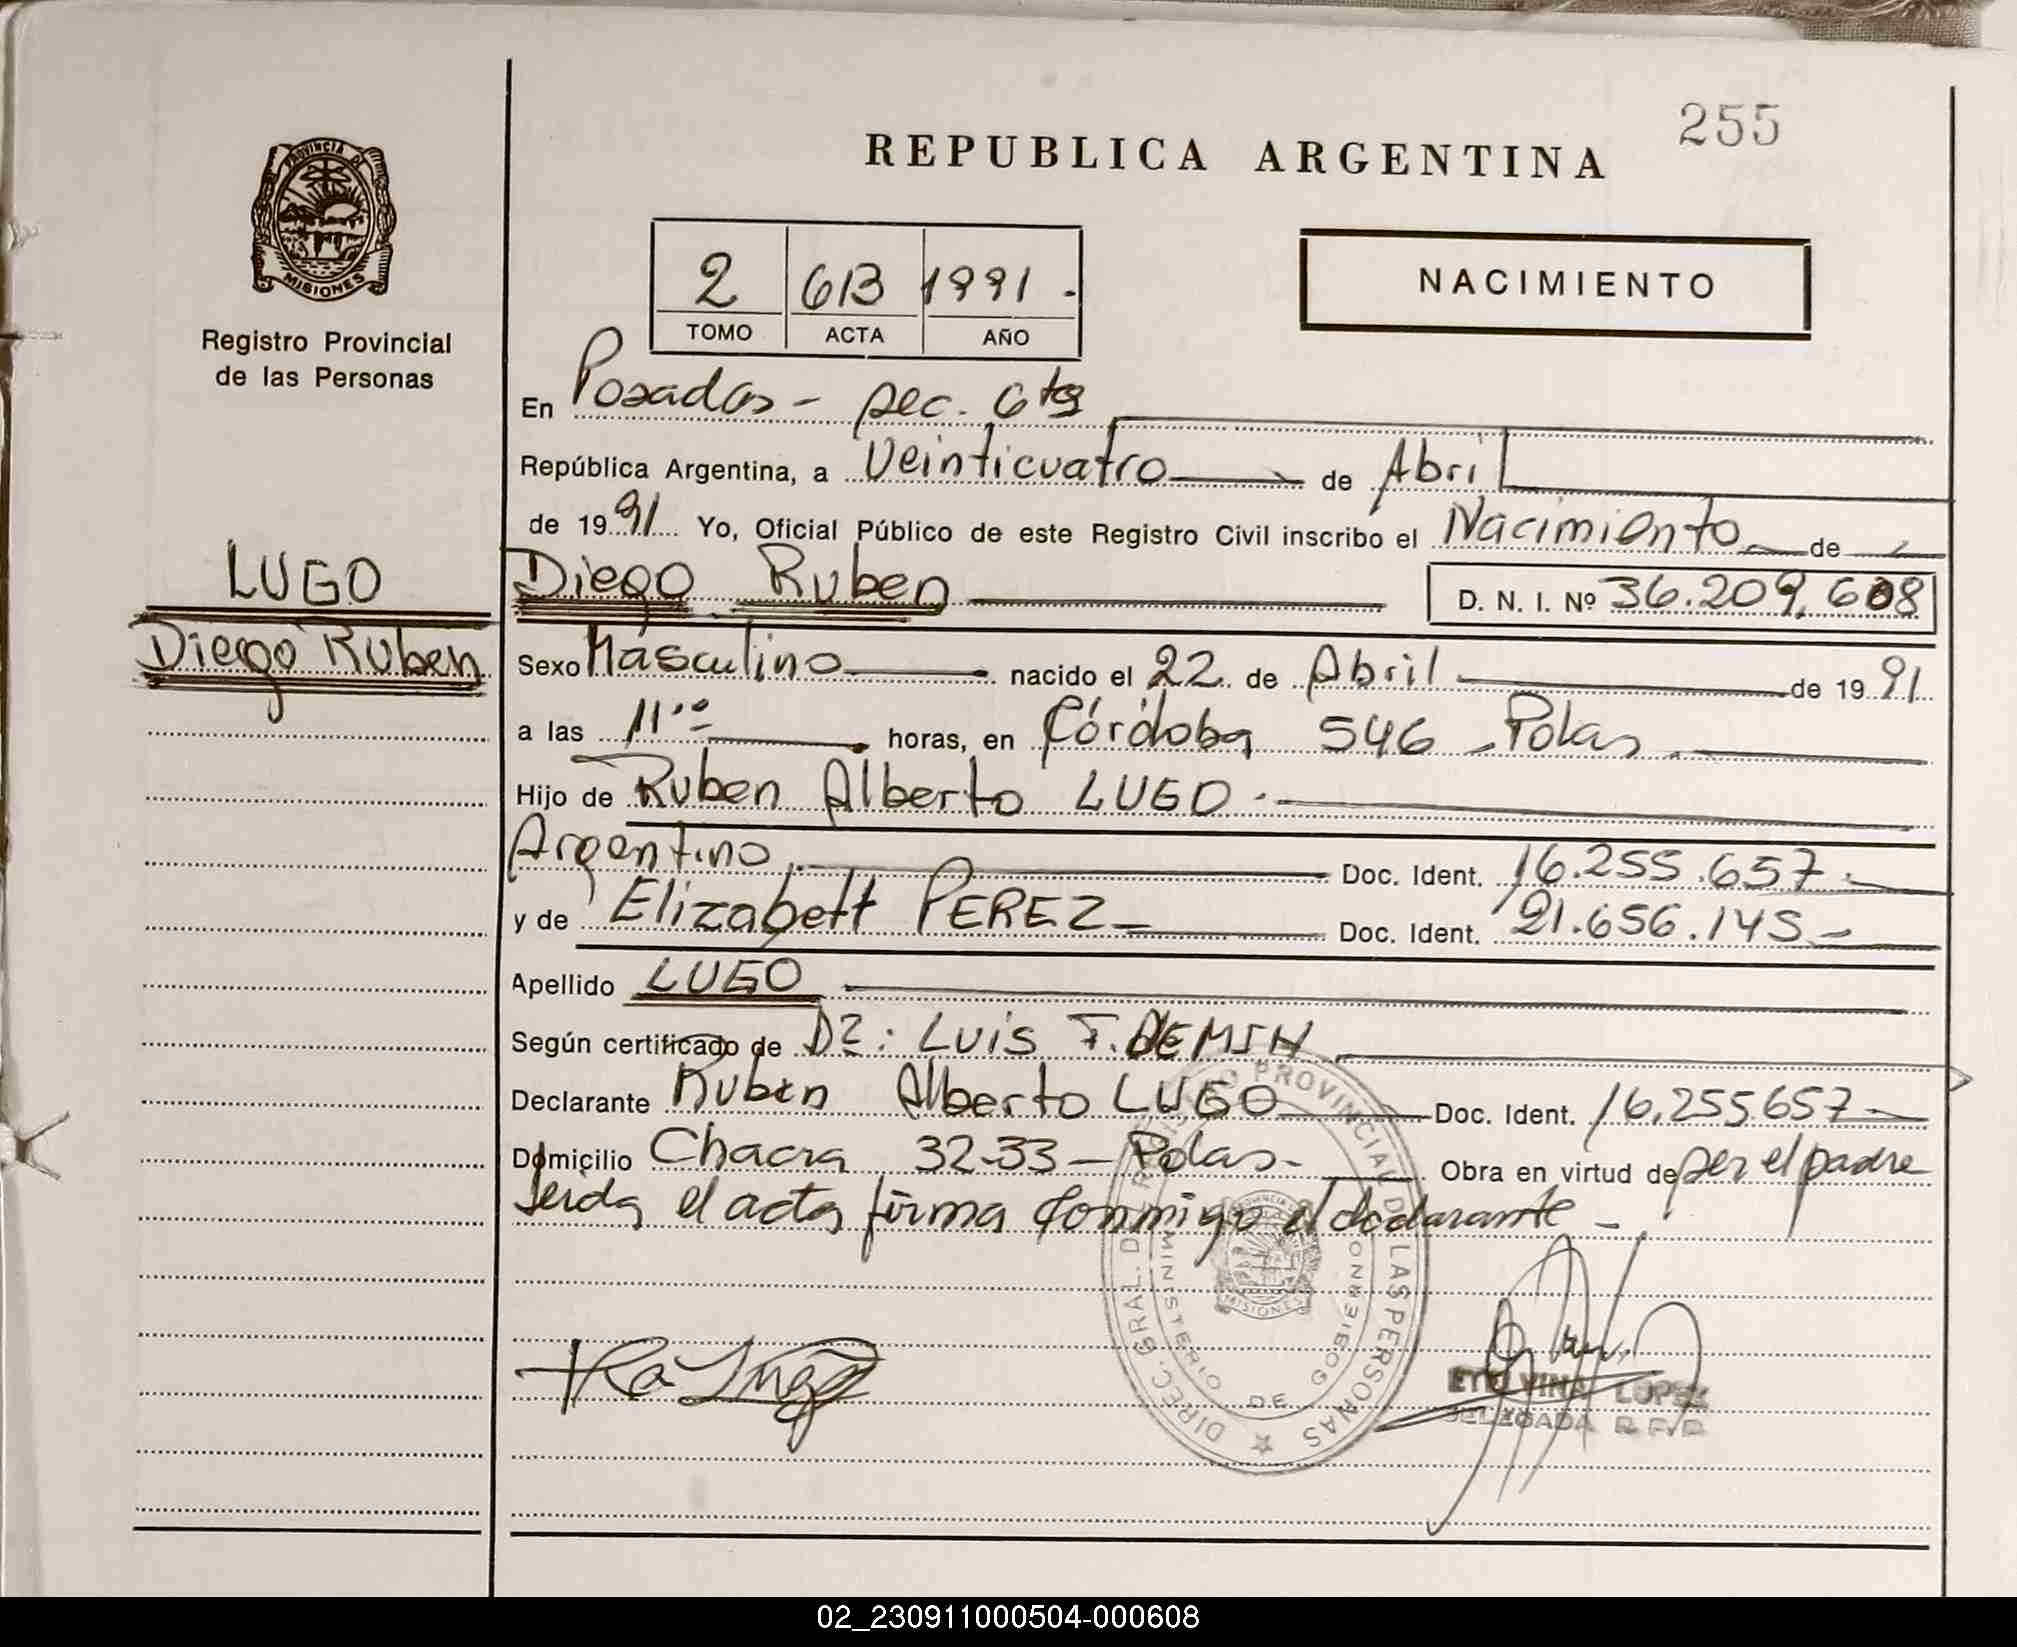 255
REPUBLICA ARGENTINA
PROVINCIA DE
MISIONES
Registro Provincial
de las Personas
2 613 1991.
TOMO ACTA AÑO
NACIMIENTO
En Posadas - sec. 6ta
República Argentina, a Veinticuatro de Abril
de 1991 Yo, Oficial Público de este Registro Civil inscribo el Nacimiento de
LUGO
Diego Ruben
Diego Ruben D. N. I. Nº 36.209.608
Sexo Masculino nacido el 22 de Abril de 1991
a las 11 horas, en Córdoba 546 - Pdas
Hijo de Ruben Alberto LUGO.-
Argentino Doc. Ident. 16.255.657.-
y de Elizabett PEREZ Doc. Ident. 21.656.145.-
Apellido LUGO
Según certificado de Dr: Luis F.
Declarante Ruben Alberto LUGO Doc. Ident. 16.255.657
Domicilio Chacra 32-33 - Pdas- Obra en virtud de ser el padre
Leida el acta firma conmigo el declarante -
DIREC. GRAL. DE REGISTRO PROVINCIAL DE LAS PERSONAS
MINISTERIO DE GOBIERNO
PROVINCIA
MISIONES
LOPEZ
DELEGADA R.P.P.
02_230911000504-000608